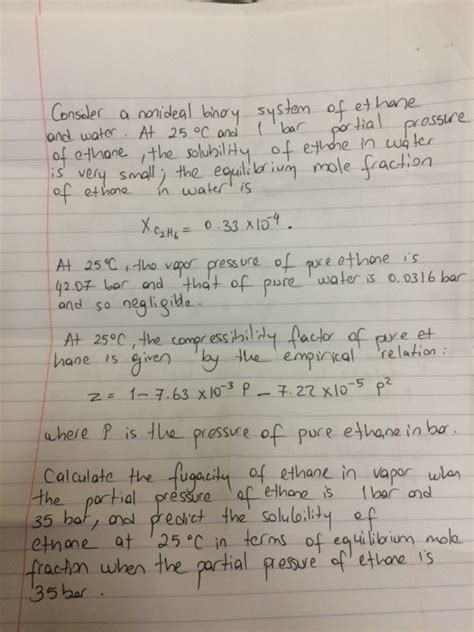 Consider a nonideal binary system of ethane
and water. At 25 °C and 1 bar partial pressure
of ethane, the solubility of ethane in water
is very small; the equilibrium mole fraction
of ethane in water is
X C2H6 = 0.33 x10-4.
At 25°C, the vapor pressure of pure ethane is
42.07 bar and that of pure water is 0.0316 bar
and so negligible.
At 25°C, the compressibility factor of pure et
hane is given by the empirical relation:
z = 1- 7.63 x10-3 P - 7.22 x10-5 P2
where P is the pressure of pure ethane in bar.
Calculate the fugacity of ethane in vapor when
the partial pressure of ethane is 1 bar and
35 bar, and predict the solubility of
ethane at 25°C in terms of equilibium mole
fraction when the partial pressure of ethane is
35 bar.